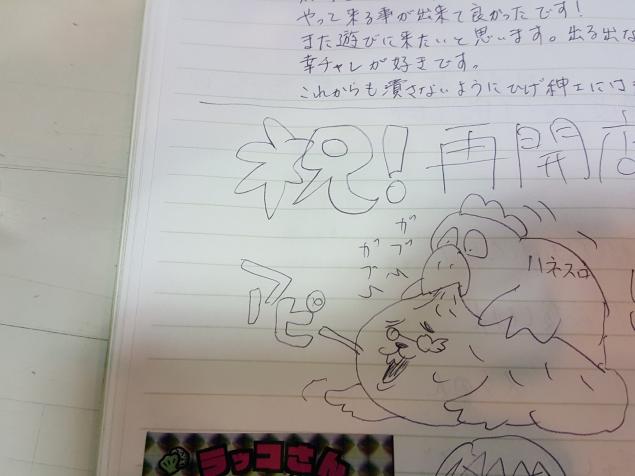 やって来る事が出来て良かったです!
また遊びに来たいと思います。出る出な
幸チャレが好きです。
これからも潰さないようにひげ紳士には
祝! 再開店
ガブ〜
ガブ〜
ハネスロ
アピ
ラッコさん